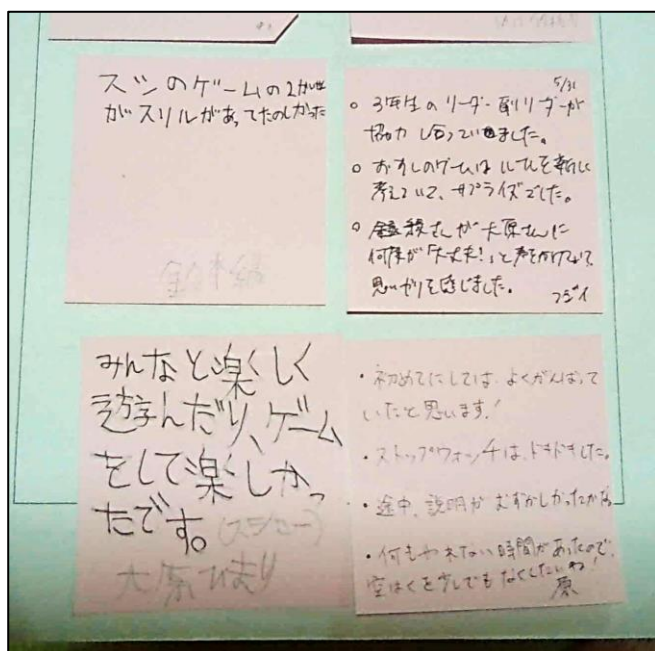 スシのゲームの2かい世
がスリルがあってたのしかった
鈴木
5/31
○ 3年生のリーダー・副リーダーが
協力し合っていました。
○ おすしのゲームはルールを新しく
考えていて、サプライズでした。
さんが大原さんに
何度が「大丈夫！」と声をかけていて
思いやりを感じました。
フジイ
みんなと楽しく
遊んだり、ゲーム
をして楽しかっ
たです。(スシロー)
大原ひまり
・初めてにしては、よくがんばって
いたと思います！
・ストップウォッチは、ドキドキした。
・途中、説明がむずかしかったかな
・何もやれない時間があったので、
空はくを少しでもなくしたいね！
原